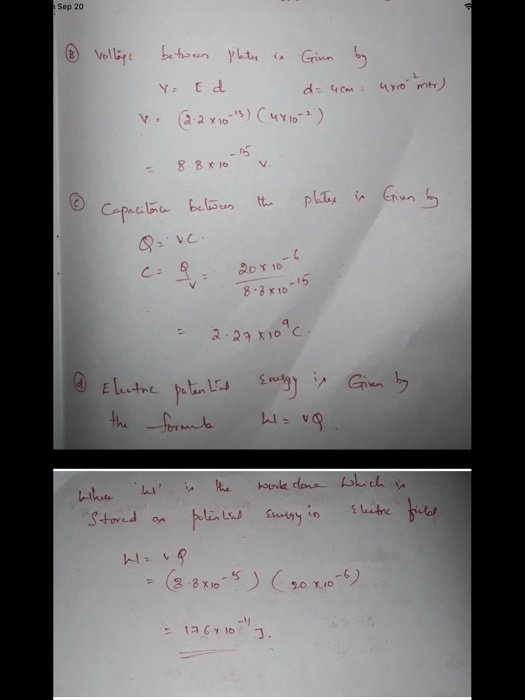 Sep 20
(B) Voltage between plates is Given by
V = E d d = 4 cm = 4x10^-2 meter)
V = (2.2 x 10^-13) (4x10^-2)
= 8.8 x 10^-15 V.
(C) Capacitance between the plates is Given by
Q = VC.
C = Q/V = 20 x 10^-6 / 8.8 x 10^-15
= 2.27 x 10^9 C.
(d) Electric potential Energy is Given by
the formula W = VQ.
Where 'W' is the work done which is
Stored as potential Energy in Electric field
W = VQ
= (8.8 x 10^-15) (20 x 10^-6)
= 176 x 10^-21 J.